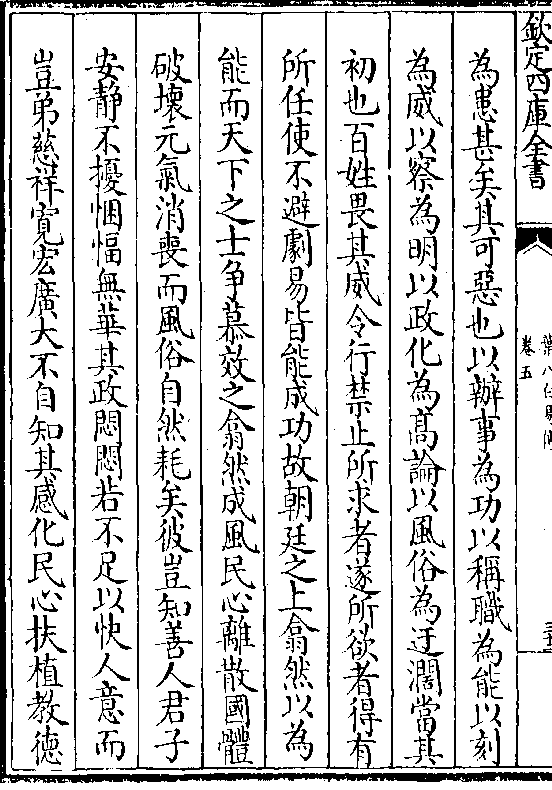 欽定四庫全書
卷五
為患甚矣其可惡也以辦事為功以稱職為能以刻
為威以察為明以政化為髙論以風俗為迂濶當其
初也百姓畏其威令行禁止所求者遂所欲者得有
所任使不避劇易皆能成功故朝廷之上翕然以為
能而天下之士争慕效之翕然成風民心離散國體
破壞元氣消喪而風俗自然耗矣彼豈知善人君子
安静不擾悃愊無華其政悶悶若不足以快人意而
豈弟慈祥寛宏廣大不自知其感化民心扶植教德